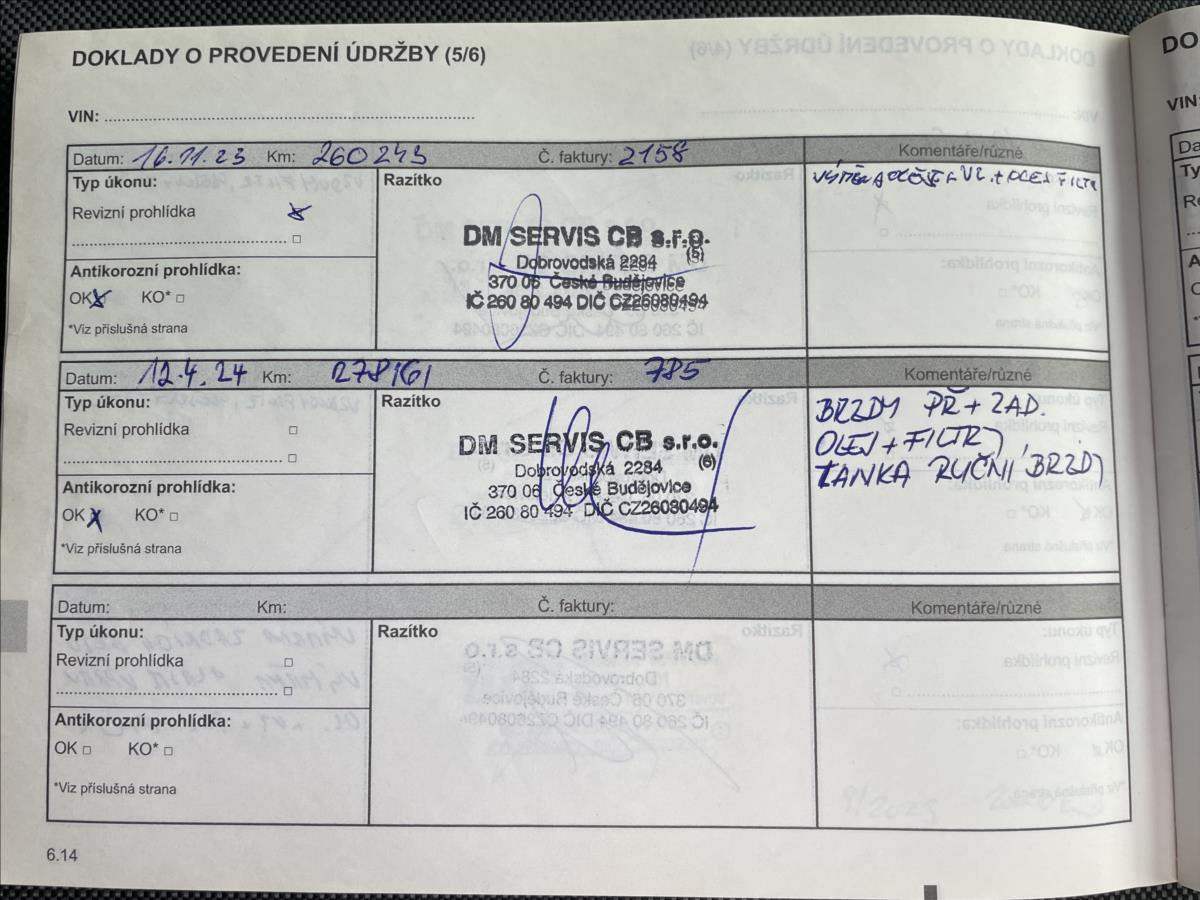 DOKLADY O PROVEDENÍ ÚDRŽBY (5/6)
VIN:
Datum: 16.11.23 Km: 260243 Č. faktury: 2158 Komentáře/různé
Typ úkonu: Razítko
VZ. + OLEJ FILTR
Revizní prohlídka
DM SERVIS CB s.r.o.
(5)
Dobrovodská 2284
Antikorozní prohlídka:
370 06 České Budějovice
OK KO*
IČ 260 80 494 DIČ CZ26080494
*Viz příslušná strana
Datum: 12.4.24 Km: 278161 Č. faktury: 785 Komentáře/různé
Typ úkonu: Razítko
BRZDY PŘ + ZAD.
Revizní prohlídka
OLEJ + FILTRY
DM SERVIS CB s.r.o.
(6)
LANKA RUČNÍ BRZDY
Dobrovodská 2284
Antikorozní prohlídka:
370 06 České Budějovice
OK KO*
IČ 260 80 494 DIČ CZ26080494
*Viz příslušná strana
Datum: Km: Č. faktury: Komentáře/různé
Typ úkonu: Razítko
Revizní prohlídka
Antikorozní prohlídka:
OK KO*
*Viz příslušná strana
6.14
DO
VIN: